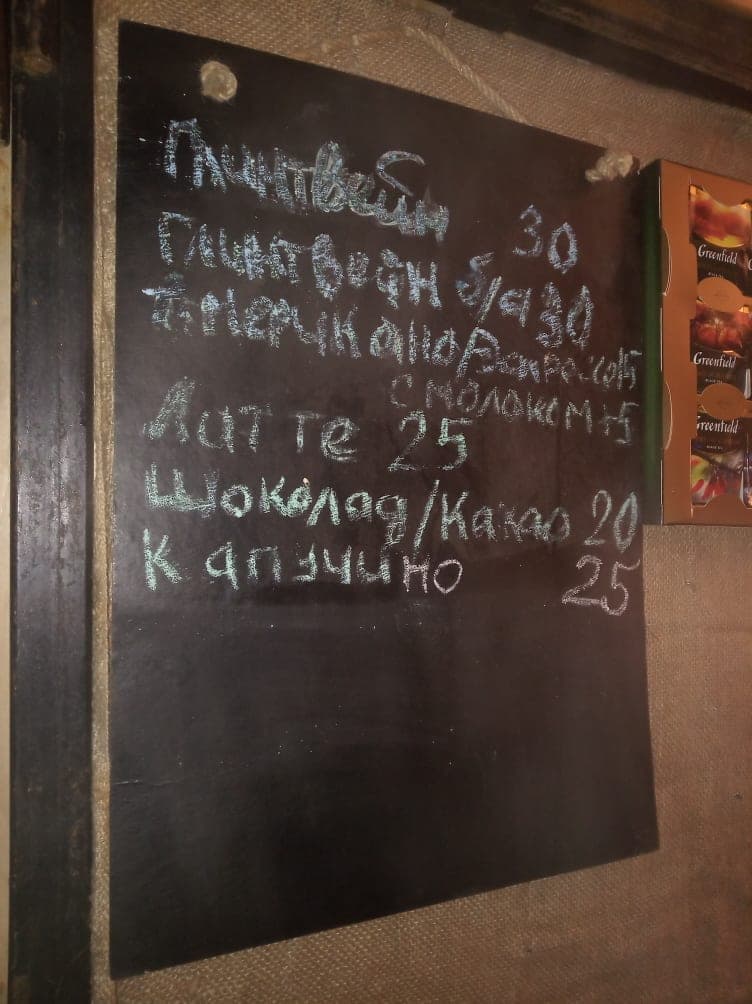 Глинтвейн 30
Глинтвейн б/а 30
Американо/Эспрессо 15
с молоком +5
Латте 25
Шоколад/Какао 20
Капучино 25
Greenfield
Greenfield
Greenfield